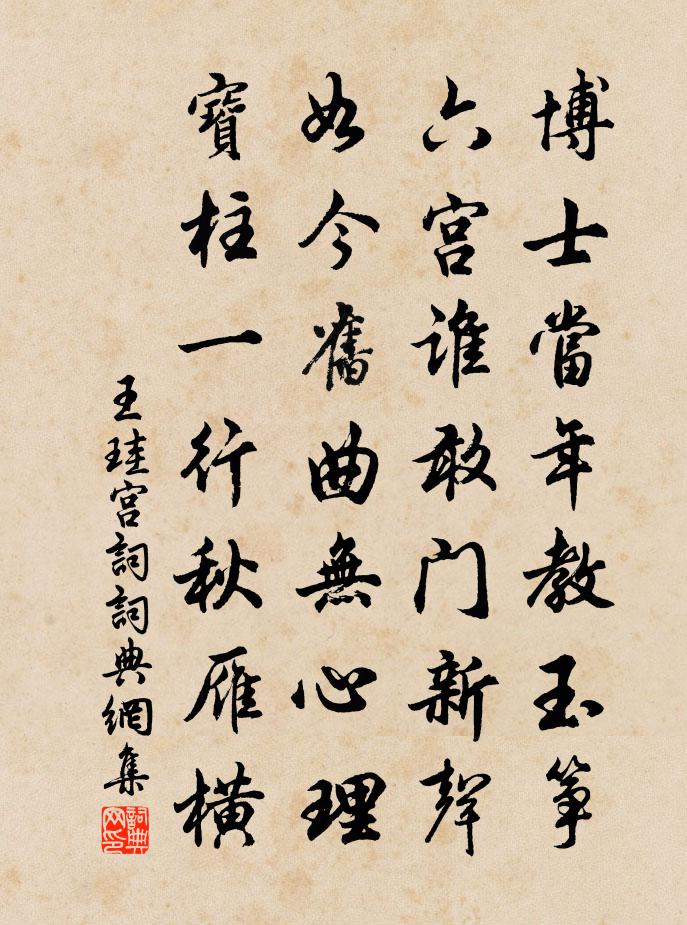 博士當年教玉箏
六宮誰敢门新聲
如今舊曲無心理
寶柱一行秋雁橫
王珪宮詞詞典網集
詞典網印